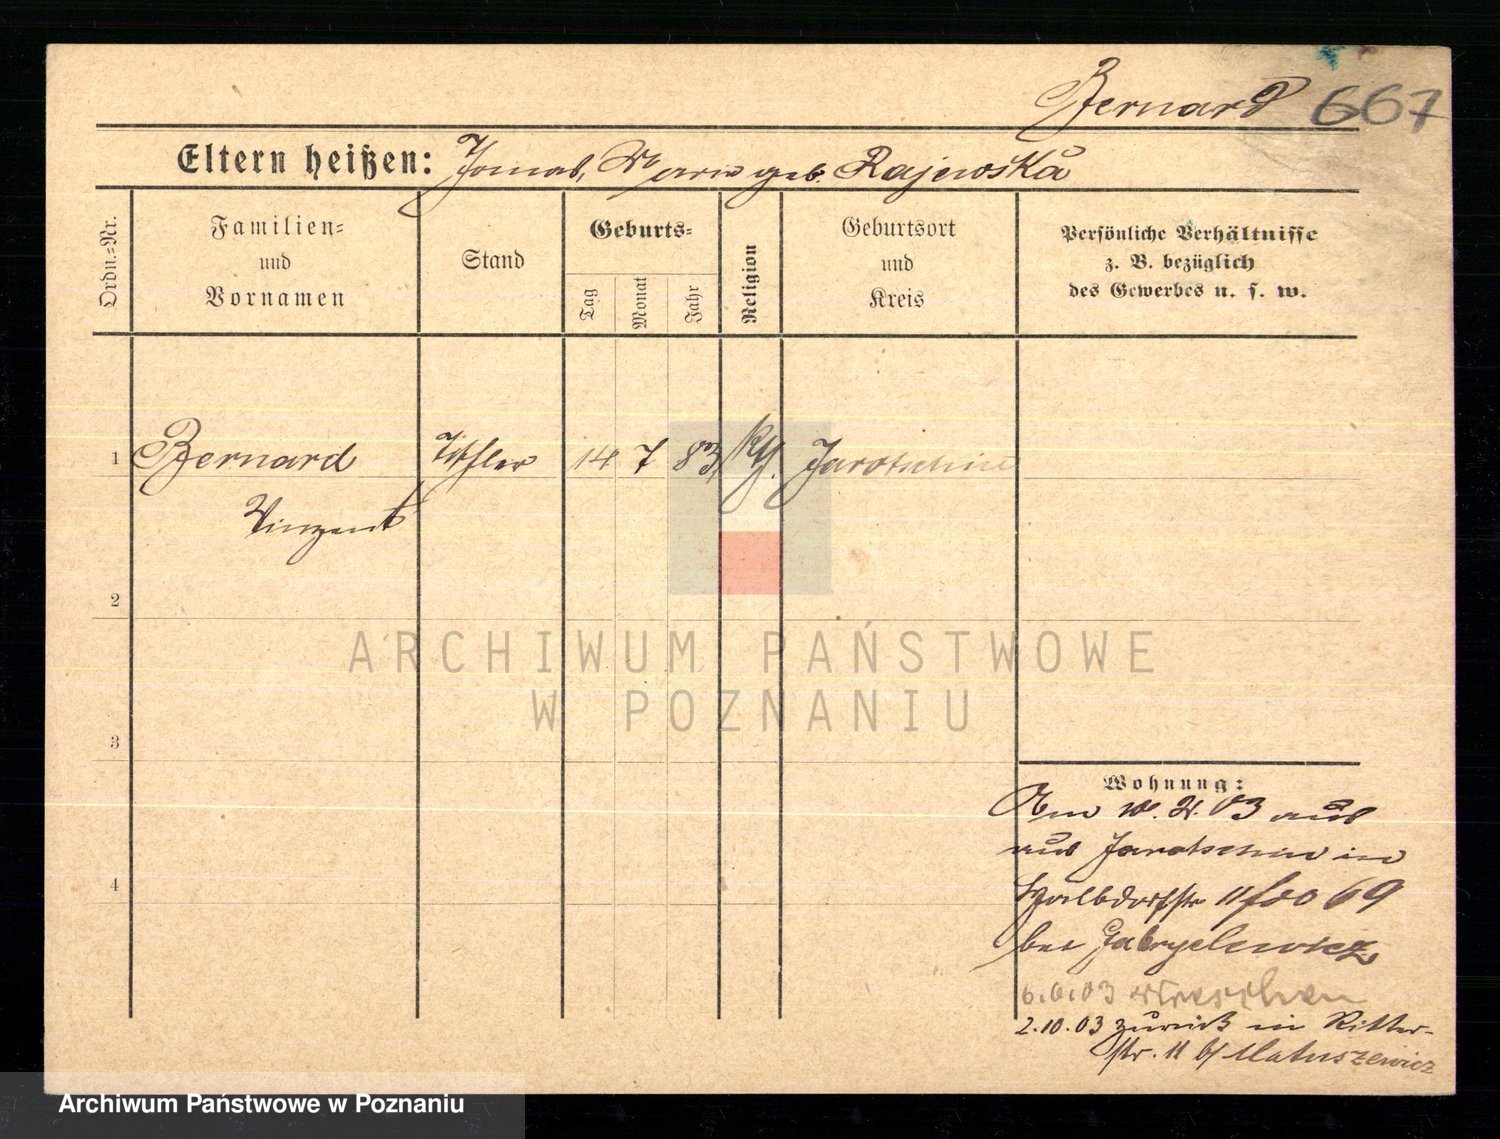 Bernard 667
Eltern heißen: geb. Rajewska
Ordn.-Nr.
Familien-
und
Vornamen
Stand
Geburts-
Tag
Monat
Jahr
Religion
Geburtsort
und
Kreis
Persönliche Verhältnisse
z. B. bezüglich
des Gewerbes u. s. w.
1 Bernard Tischler 14 7 83 kth. Jarotschin
Vinzent
2
3
4
ARCHIWUM PAŃSTWOWE
W POZNANIU
Wohnung:
Am 03
aus Jarotschin in
Halbdorfstr 69
bei Gabryelewicz
6.6.03 Wreschen
2.10.03 zurück in Ritter-
str. 11 b/ Matuszewicz
Archiwum Państwowe w Poznaniu